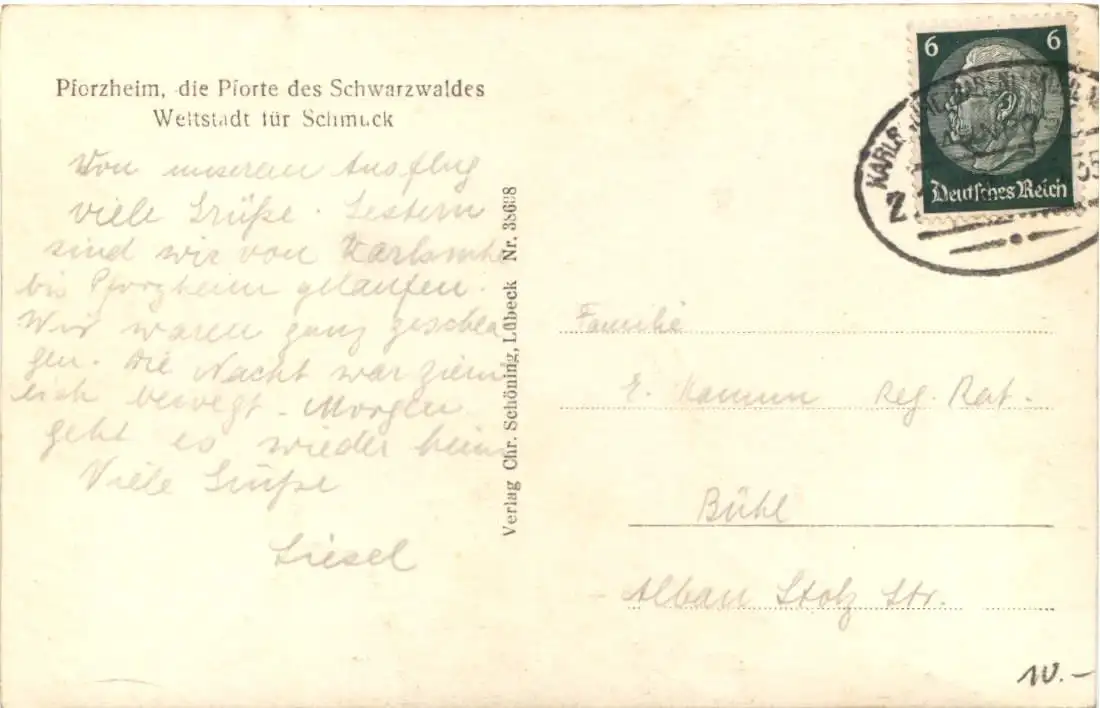 Pforzheim, die Pforte des Schwarzwaldes
Weltstadt für Schmuck
Von unserem Ausflug
viele Grüße. Gestern
sind wir von Karlsruhe
bis Pforzheim gelaufen.
Wir waren ganz geschla
gen. Die Nacht war ziem
lich bewegt. Morgen
geht es wieder heim
Viele Grüße
Liesel
Verlag Chr. Schöning, Lübeck Nr. 38698
6 6
Deutsches Reich
KARLSRUHE
Z
Familie
E. Reg. Rat.
Bühl
Alban Stolz Str.
10.-